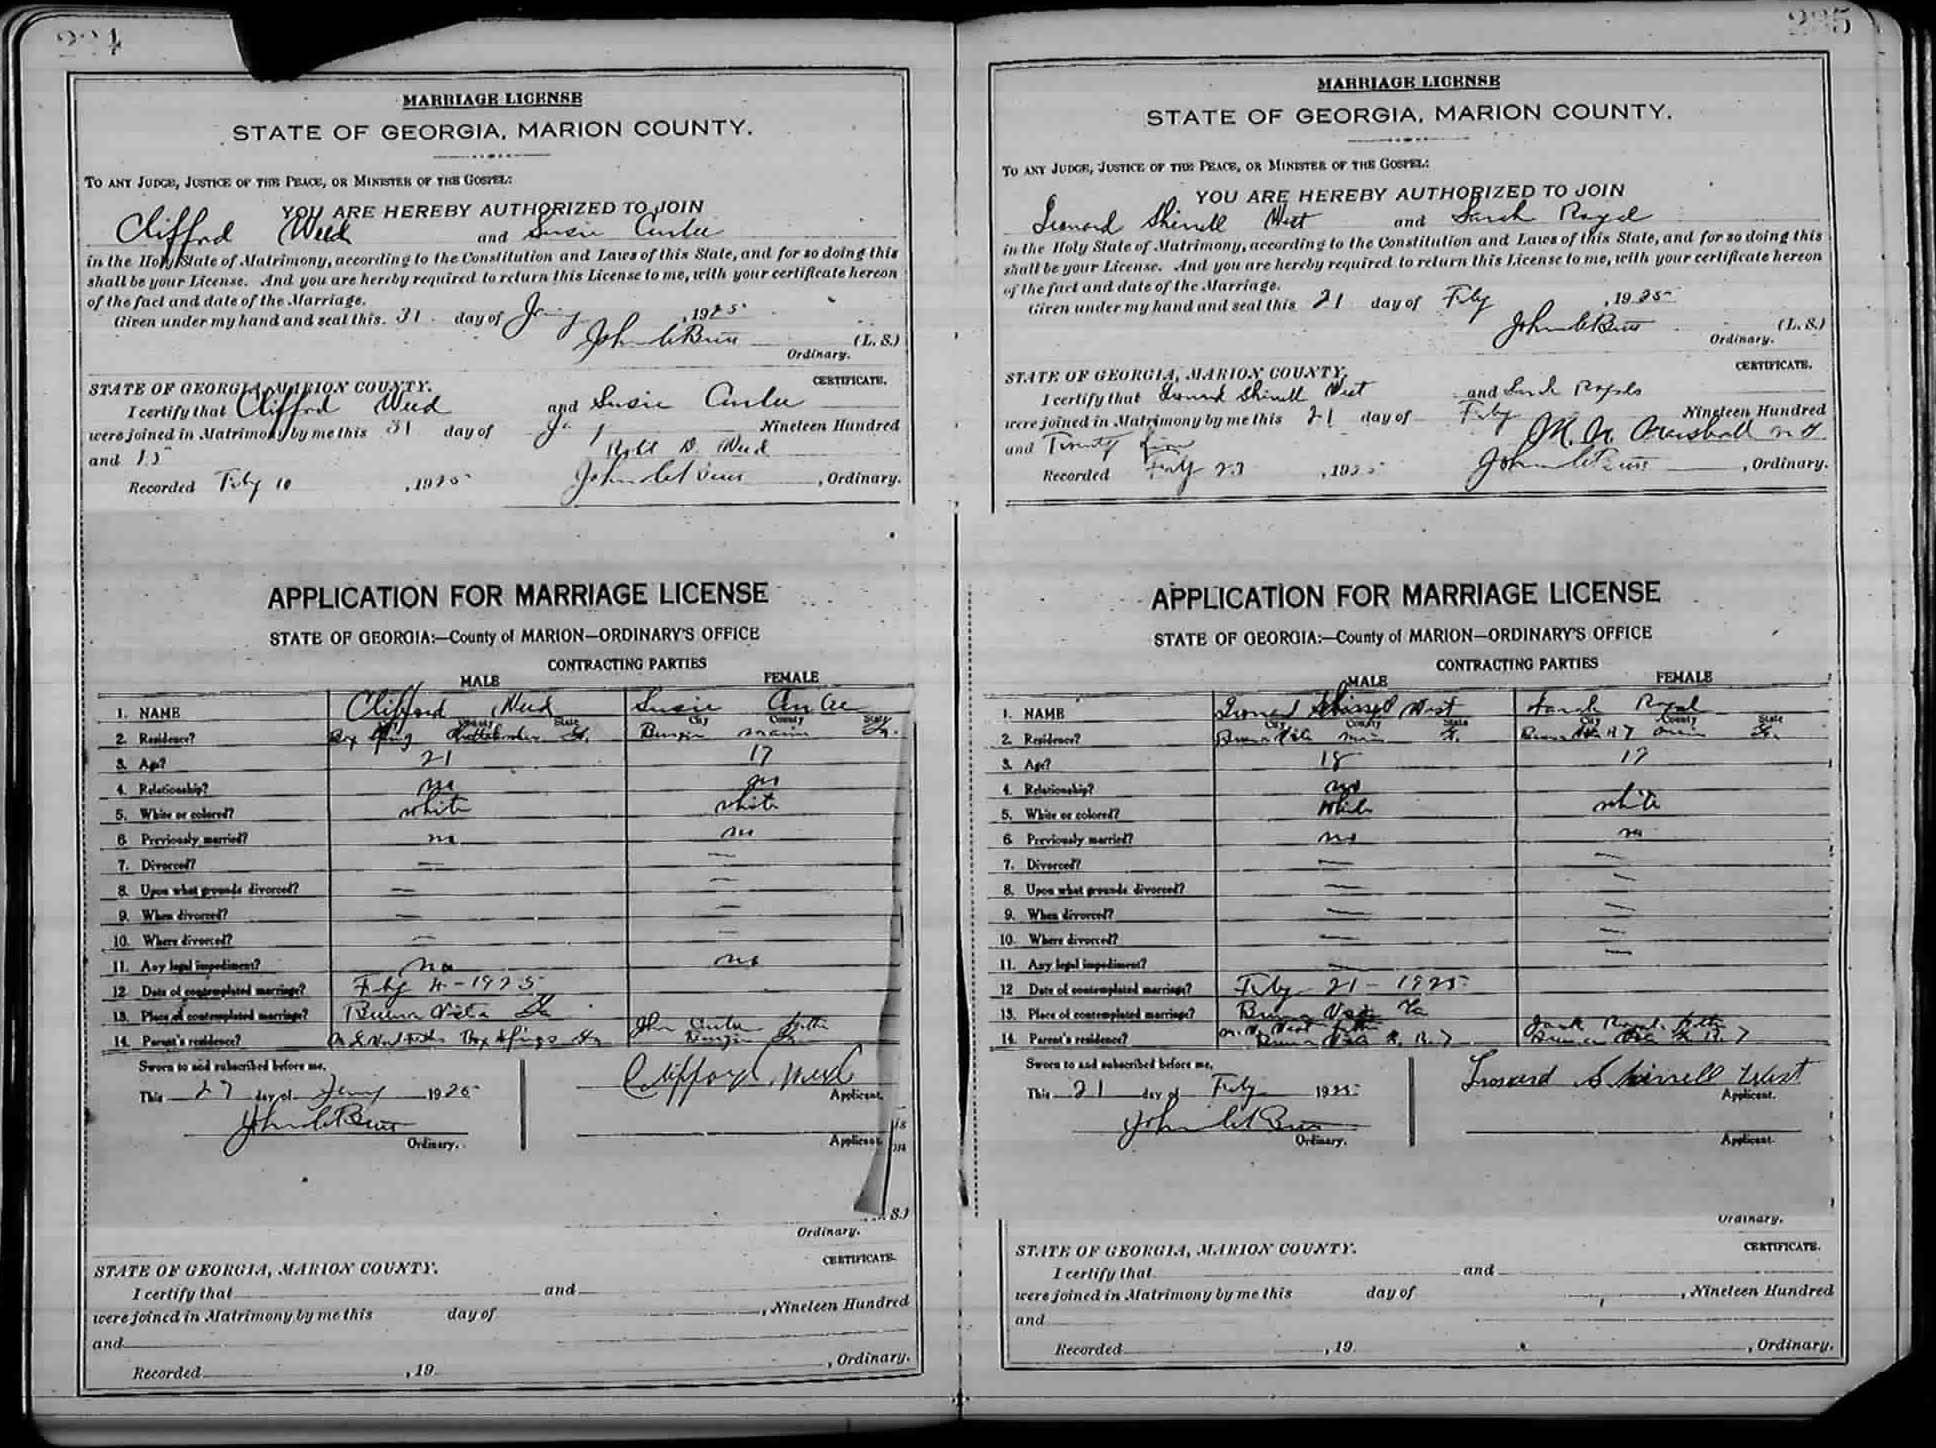 224
MARRIAGE LICENSE
STATE OF GEORGIA, MARION COUNTY.
TO ANY JUDGE, JUSTICE OF THE PEACE, OR MINISTER OF THE GOSPEL:
YOU ARE HEREBY AUTHORIZED TO JOIN
Clifford Weed and Susie
in the Holy State of Matrimony, according to the Constitution and Laws of this State, and for so doing this
shall be your License. And you are hereby required to return this License to me, with your certificate hereon
of the fact and date of the Marriage.
Given under my hand and seal this 31 day of Jany, 1925
(L. S.)
Ordinary.
CERTIFICATE.
STATE OF GEORGIA, MARION COUNTY.
I certify that Clifford Weed and Susie
were joined in Matrimony by me this 31 day of Nineteen Hundred
and Robt D Weed
Recorded Feby 10, 1925 , Ordinary.
APPLICATION FOR MARRIAGE LICENSE
STATE OF GEORGIA:—County of MARION—ORDINARY'S OFFICE
CONTRACTING PARTIES
MALE FEMALE
1. NAME Clifford Weed Susie
City County State City County State
2. Residence? Ga. Marion Ga.
3. Age? 21 17
4. Relationship? no no
5. White or colored? white white
6. Previously married? no no
7. Divorced? — —
8. Upon what grounds divorced? — —
9. When divorced? — —
10. Where divorced? — —
11. Any legal impediment? no no
12. Date of contemplated marriage? Feby 4-1925
13. Place of contemplated marriage? Buena Vista Ga
14. Parent's residence? Box Springs Ga John
Sworn to and subscribed before me,
This 27 day of Jany 1925
Clifford Weed
Applicant.
Ordinary.
Applicant.
S.)
Ordinary.
CERTIFICATE.
STATE OF GEORGIA, MARION COUNTY.
I certify that and
were joined in Matrimony by me this day of , Nineteen Hundred
and
Recorded , 19 , Ordinary.
225
MARRIAGE LICENSE
STATE OF GEORGIA, MARION COUNTY.
TO ANY JUDGE, JUSTICE OF THE PEACE, OR MINISTER OF THE GOSPEL:
YOU ARE HEREBY AUTHORIZED TO JOIN
Leonard Shirrell West and Sarah Royal
in the Holy State of Matrimony, according to the Constitution and Laws of this State, and for so doing this
shall be your License. And you are hereby required to return this License to me, with your certificate hereon
of the fact and date of the Marriage.
Given under my hand and seal this 21 day of Feby, 1925
(L. S.)
Ordinary.
CERTIFICATE.
STATE OF GEORGIA, MARION COUNTY.
I certify that Leonard Shirrell West and Sarah Royals
were joined in Matrimony by me this 21 day of Feby Nineteen Hundred
and Twenty five Marshall
Recorded Feby 23, 1925 , Ordinary.
APPLICATION FOR MARRIAGE LICENSE
STATE OF GEORGIA:—County of MARION—ORDINARY'S OFFICE
CONTRACTING PARTIES
MALE FEMALE
1. NAME Leonard Shirrell West Sarah Royal
City County State City County State
2. Residence? Buena Vista Ga. Buena Vista Ga.
3. Age? 18 17
4. Relationship? no
5. White or colored? white white
6. Previously married? no no
7. Divorced? — —
8. Upon what grounds divorced? — —
9. When divorced? — —
10. Where divorced? — —
11. Any legal impediment? — —
12. Date of contemplated marriage? Feby 21-1925
13. Place of contemplated marriage? Buena Vista Ga
14. Parent's residence? West father Buena Vista R. 7 Jack Royal father Buena Vista Ga R. 7
Sworn to and subscribed before me,
This 21 day of Feby 1925
Leonard Shirrell West
Applicant.
Ordinary.
Applicant.
Ordinary.
CERTIFICATE.
STATE OF GEORGIA, MARION COUNTY.
I certify that and
were joined in Matrimony by me this day of , Nineteen Hundred
and
Recorded , 19 , Ordinary.